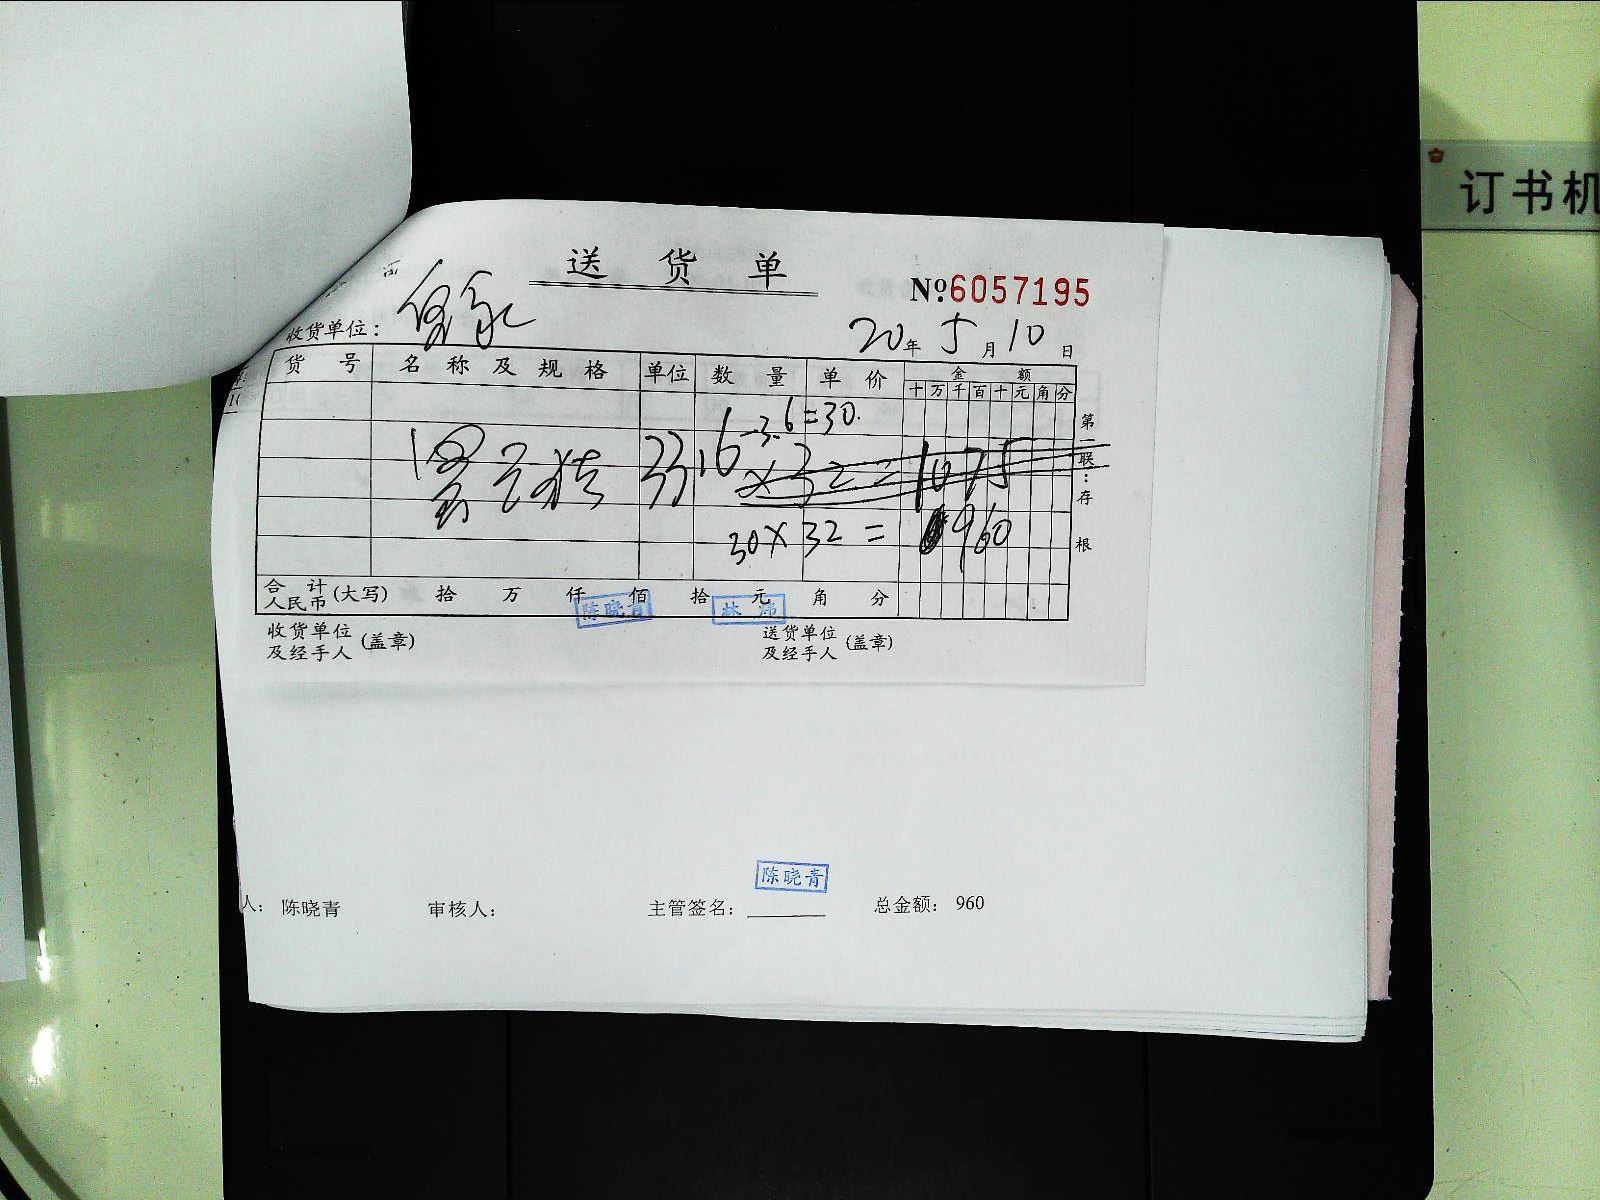 订书机
送货单
№6057195
收货单位:
20年5月10日
货号 名称及规格 单位 数量 单价 金额
十万千百十元角分
-3.6=30.
33.6 ×32=1075
30×32=960
合计人民币(大写) 拾 万 仟 佰 拾 元 角 分
陈晓青 林炜
收货单位及经手人(盖章) 送货单位及经手人(盖章)
第一联:存根
陈晓青
人: 陈晓青 审核人: 主管签名: 总金额: 960